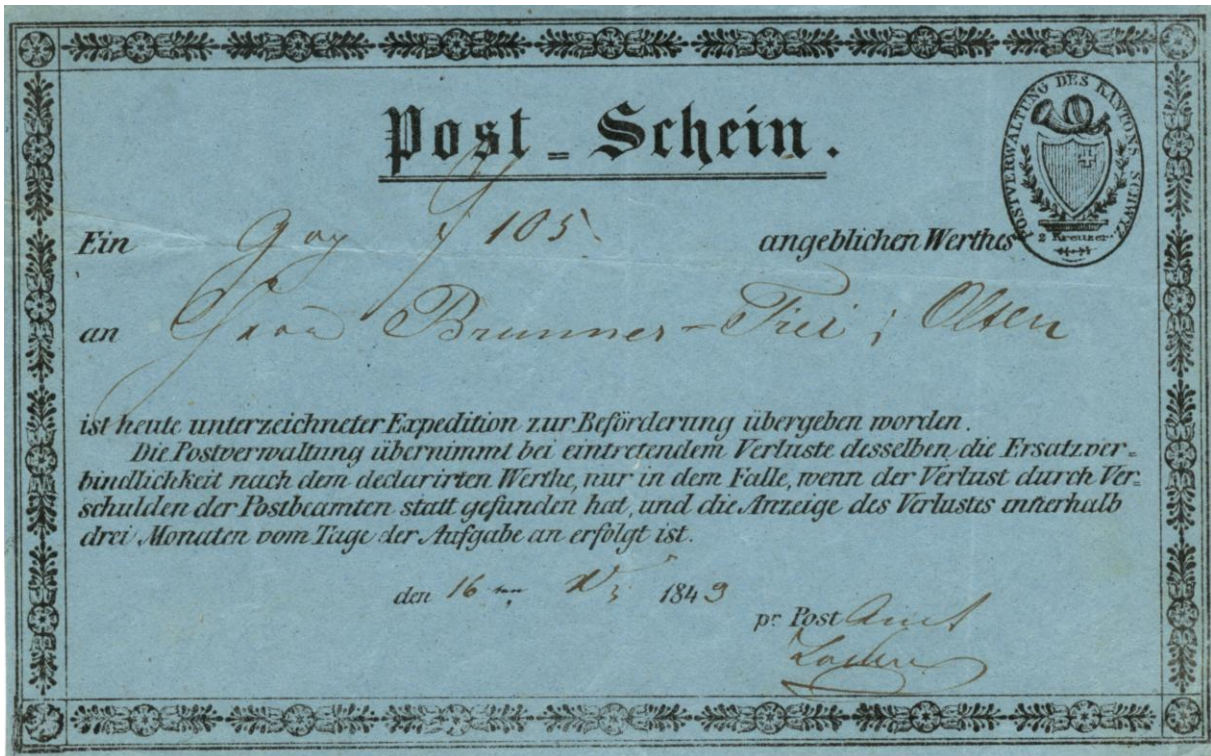 Post = Schein.
POSTVERWALTUNG DES KANTONS SCHWYZ
2 Kreuzer.
Ein 105. angeblichen Werthes
an Brunner = Frei, Olten
ist heute unterzeichneter Expedition zur Beförderung übergeben worden.
Die Postverwaltung übernimmt bei eintretendem Verluste desselben, die Ersatzver=
bindlichkeit nach dem declarirten Werthe, nur in dem Falle, wenn der Verlust durch Ver=
schulden der Postbeamten statt gefunden hat, und die Anzeige des Verlustes innerhalb
drei Monaten vom Tage der Aufgabe an erfolgt ist.
den 16 ten 1849
pr Post Amt